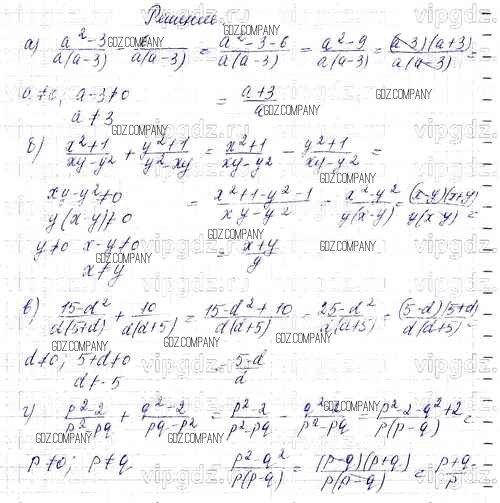 Решение.
а) (a²-3)/(a(a-3)) - 6/(a(a-3)) = (a²-3-6)/(a(a-3)) = (a²-9)/(a(a-3)) = ((a-3)(a+3))/(a(a-3)) =
a≠0, a-3≠0 = (a+3)/a
a≠3
б) (x²+1)/(xy-y²) + (y²+1)/(y²-xy) = (x²+1)/(xy-y²) - (y²+1)/(xy-y²) =
xy-y²≠0 = (x²+1-y²-1)/(xy-y²) = (x²-y²)/(y(x-y)) = ((x-y)(x+y))/(y(x-y)) =
y(x-y)≠0
y≠0 x-y≠0 = (x+y)/y
x≠y
в) (15-d²)/(d(5+d)) + 10/(d(d+5)) = (15-d²+10)/(d(d+5)) = (25-d²)/(d(d+5)) = ((5-d)(5+d))/(d(d+5)) =
d≠0; 5+d≠0 = (5-d)/d
d≠-5
г) (p²-2)/(p²-pq) + (q²-2)/(pq-p²) = (p²-2)/(p²-pq) - (q²-2)/(p²-pq) = (p²-2-q²+2)/(p(p-q)) =
p≠0; p≠q = (p²-q²)/(p(p-q)) = ((p-q)(p+q))/(p(p-q)) = (p+q)/p
GDZ.COMPANY
vipgdz.ru